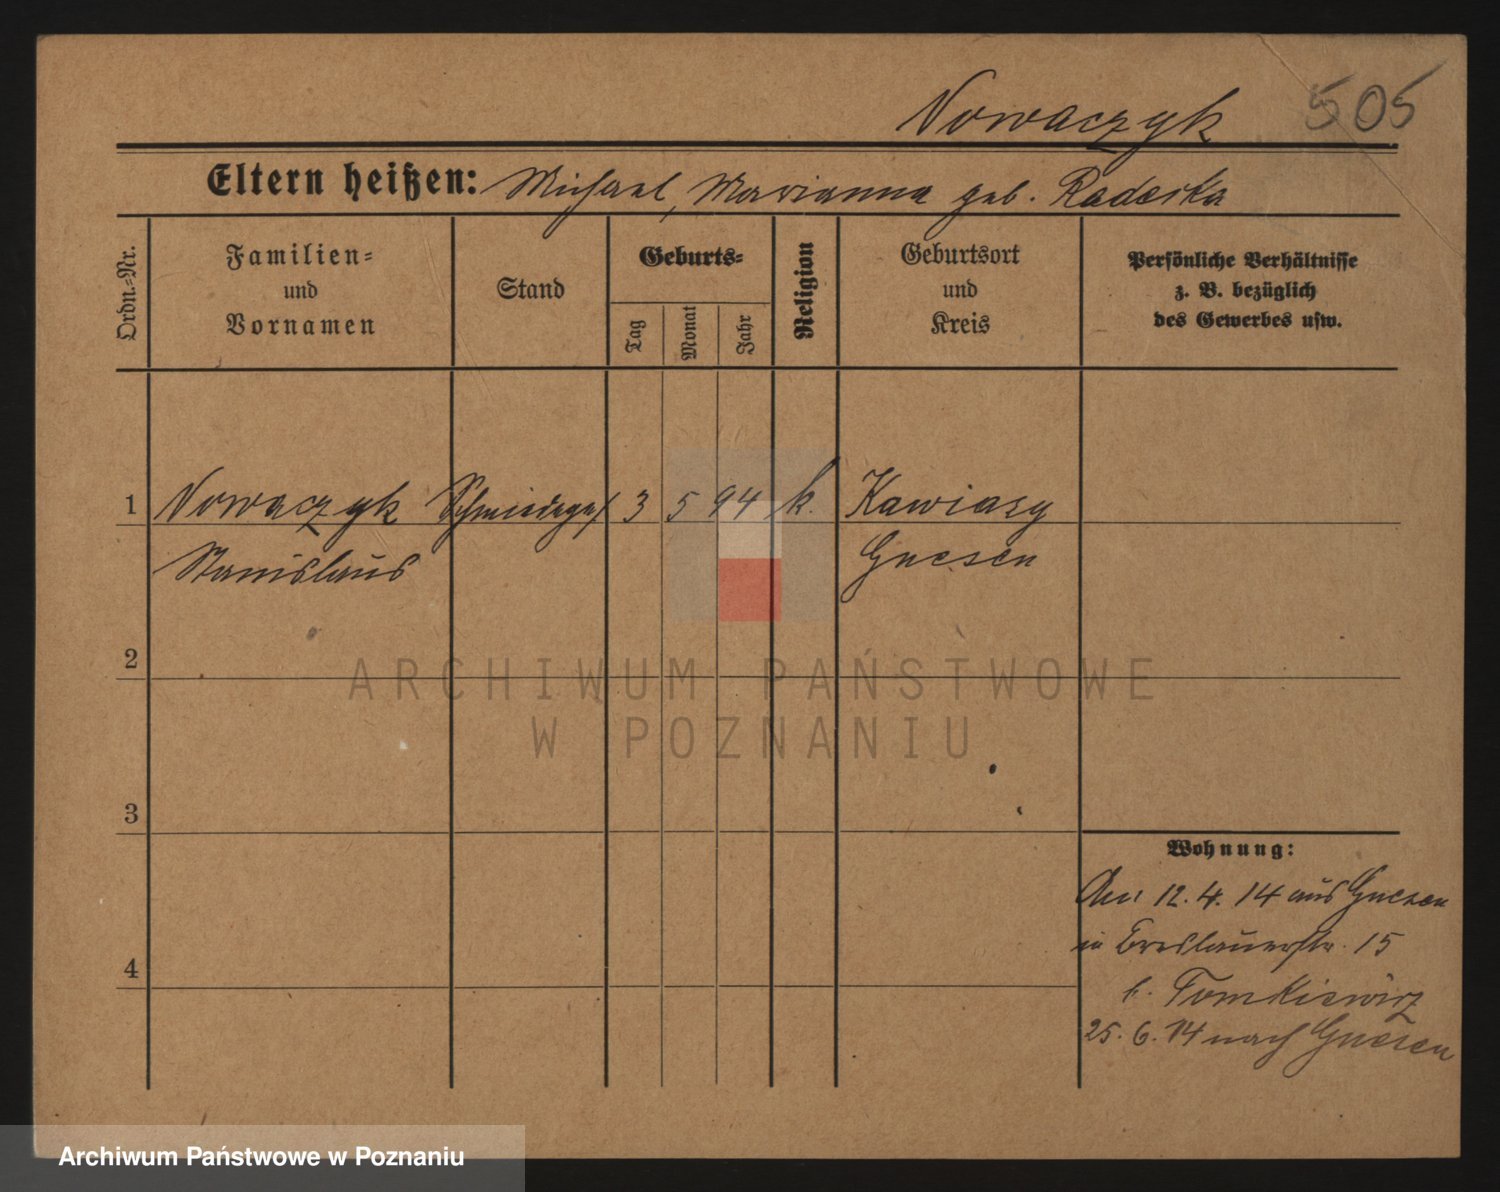 Nowaczyk 505
Eltern heißen: Michael, Marianna geb. Raderka
Ordn.-Nr.
Familien-
und
Vornamen
Stand
Geburts-
Tag
Monat
Jahr
Religion
Geburtsort
und
Kreis
Persönliche Verhältnisse
z. B. bezüglich
des Gewerbes usw.
1 Nowaczyk Schmiedegs 3 5 94 k. Kawiary
Stanislaus Gnesen
2
ARCHIWUM PAŃSTWOWE
W POZNANIU
3
Wohnung:
12. 4. 14 aus Gnesen
in Breslauerstr. 15
b. Tomkiewicz
4
25. 6. 14 nach Gnesen
Archiwum Państwowe w Poznaniu